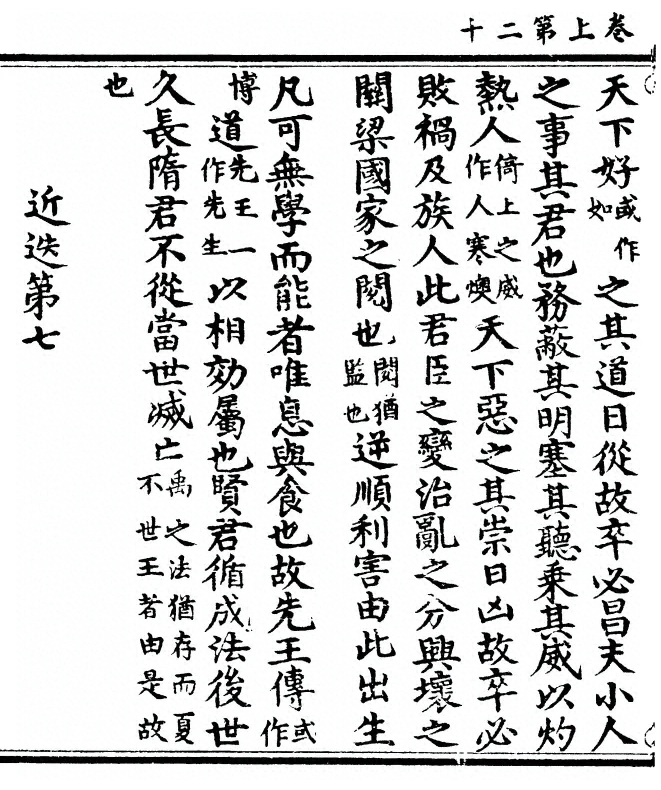 卷上第二十
天下好或作如之其道日從故卒必昌夫小人
之事其君也務蔽其明塞其聽乘其威以灼
熱人倚上之威作人寒燠天下惡之其崇日凶故卒必
敗禍及族人此君臣之變治亂之分興壞之
關梁國家之閱也閱猶監也逆順利害由此出生
凡可無學而能者唯息與食也故先王傳或作
博道先王一作先生以相効屬也賢君循成法後世
久長隋君不從當世滅亡禹之法猶存而夏不世王者由是故
也
近迭第七